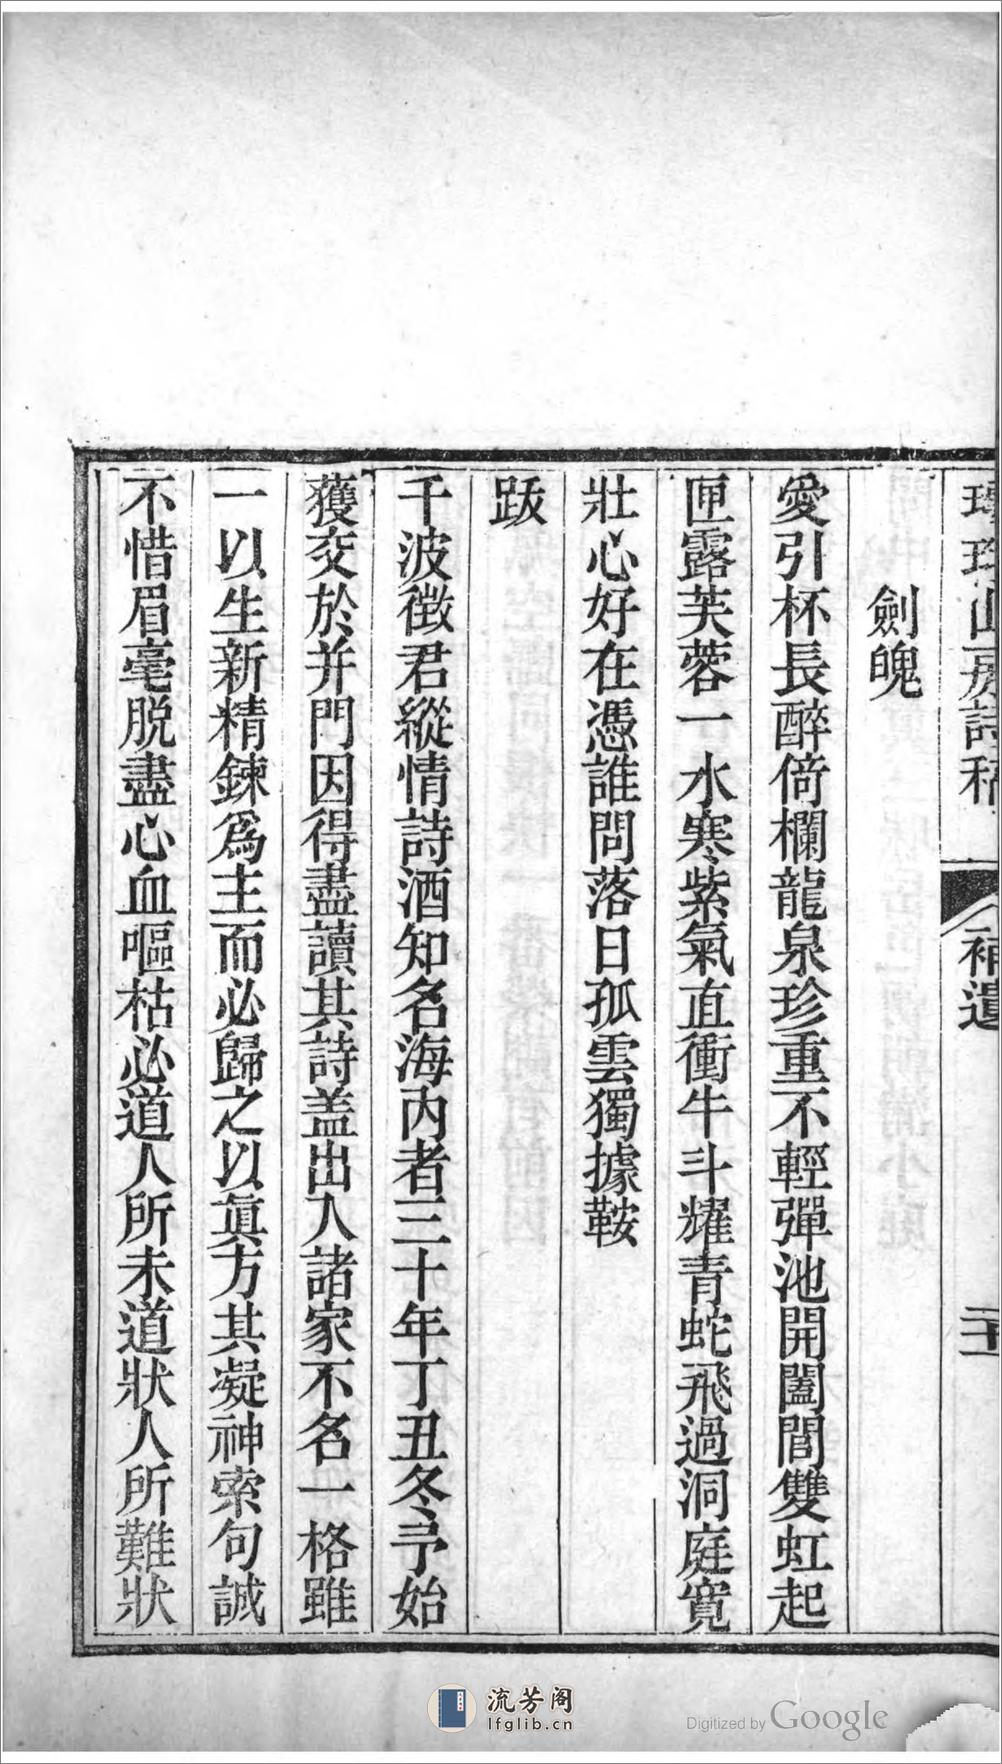 山房詩稿
補遺
劍魄
愛引杯長醉倚欄龍泉珍重不輕彈池開闔閭雙虹起
匣露芙蓉一水寒紫氣直衝牛斗耀青蛇飛過洞庭寬
壯心好在憑誰問落日孤雲獨據鞍
跋
千波徵君縱情詩酒知名海內者三十年丁丑冬予始
獲交於并門因得盡讀其詩盖出入諸家不名一格雖
一以生新精鍊爲主而必歸之以眞方其凝神索句誠
不惜眉毫脱盡心血嘔枯必道人所未道狀人所難狀
流芳阁
lfglib.cn
Digitized by Google